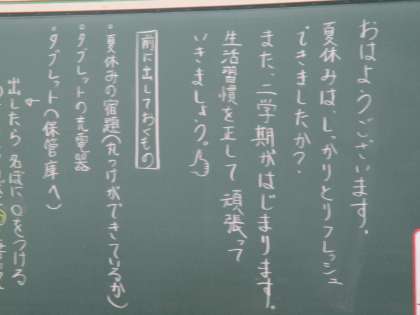 おはようございます。
夏休みは、しっかりとリフレッシュ
できましたか？
また、二学期がはじまります。
生活習慣を正して頑張って
いきましょう。
前に出しておくもの
・夏休みの宿題(丸つけができているか)
・タブレットの充電器
・タブレット(保管庫へ)
出したら名ぼに○をつける